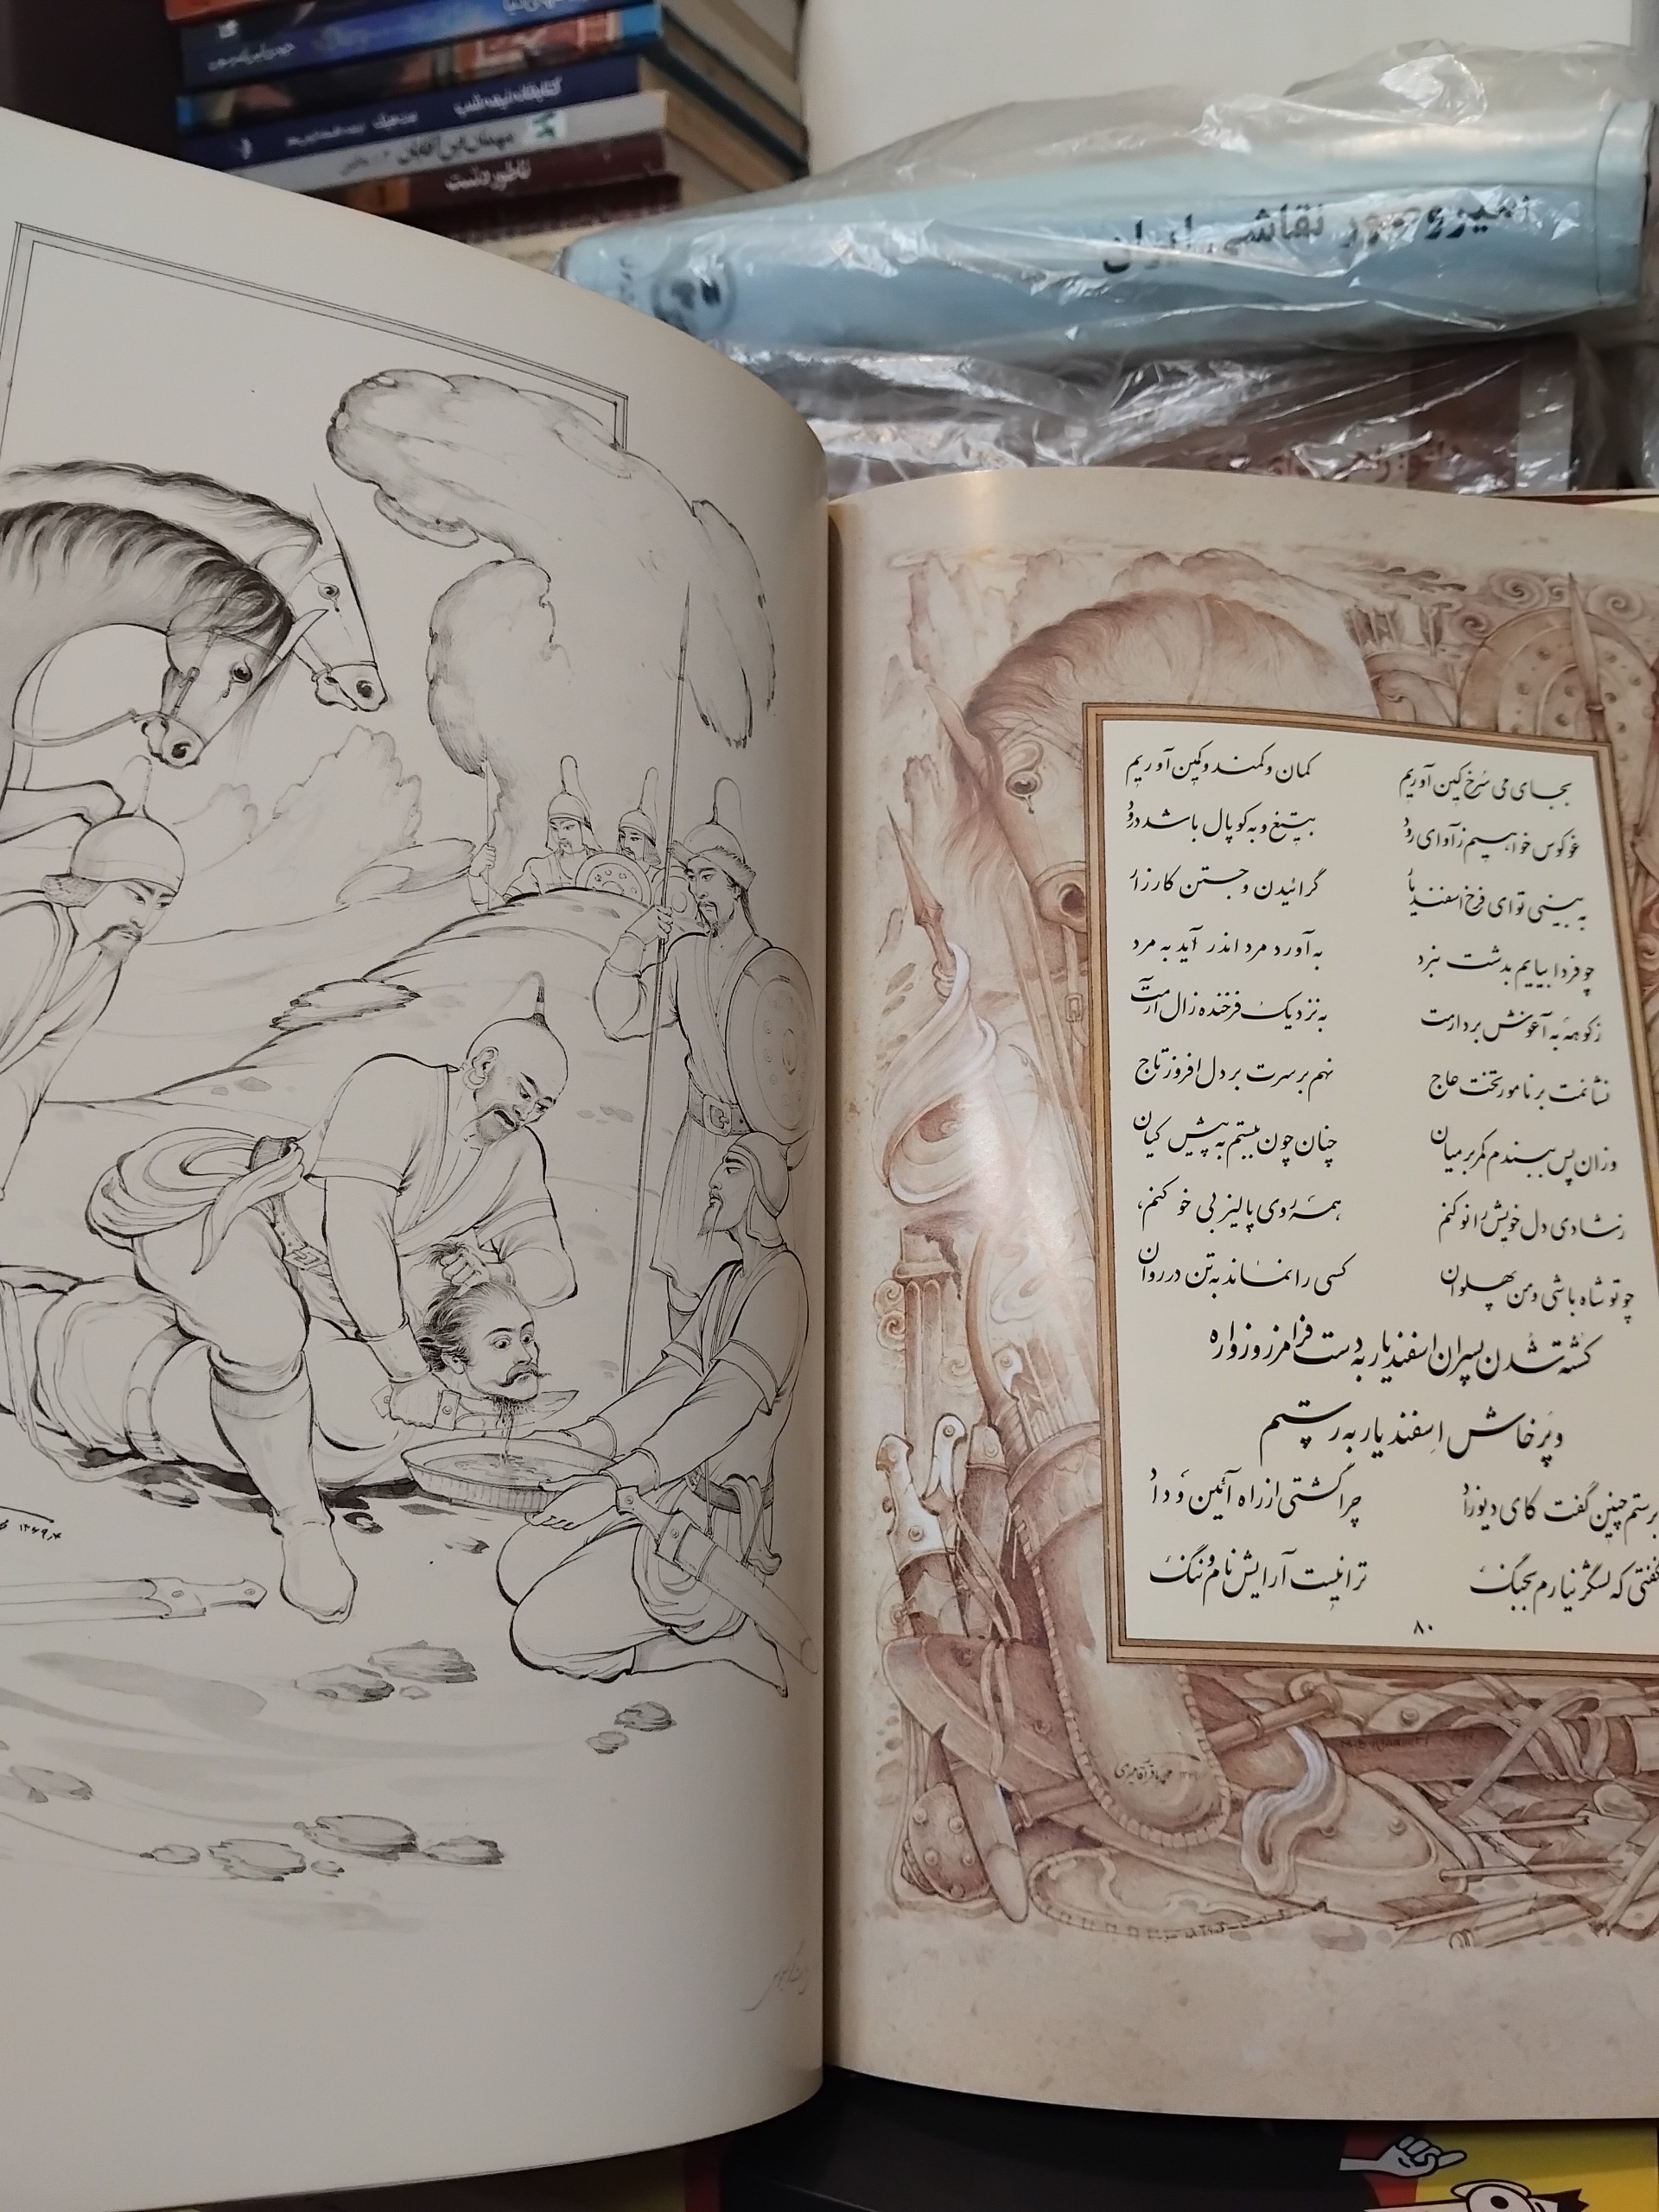 کتابخانه نیمه‌شب
مهمان این آقایان
ناطور دشت
نقاشی ایران
بجای می سرخ کین آوریم کمان و کمند و کمین آوریم
غو کوس خواهیم ز آوای رود بتیغ و به کوپال باشد درود
به بینی تو ای فرخ اسفندیار گرائیدن و جستن کارزار
چو فردا بیایم بدشت نبرد به آورد مرد اندر آید به مرد
ز کوهه به آغوش بردارمت به نزدیک فرخنده زال آرمت
نشانمت بر نامور تخت عاج نهم بر سرت بر دل افروز تاج
وزان پس ببندم کمر بر میان چنان چون ببستم به پیش کیان
ز شادی دل خویش را نو کنم همه روی پالیز بی خو کنم
چو تو شاه باشی و من پهلوان کسی را نماند به تن در روان
کشته شدن پسران اسفندیار به دست فرامرز و زواره
و پرخاش اسفندیار به رستم
برستم چنین گفت کای دیوزاد چرا گشتی از راه آئین و داد
نگفتی که لشگر نیارم بجنگ ترا نیست آرایش نام و ننگ
۸۰
محمد باقر آقامیری
۱۳۶۹